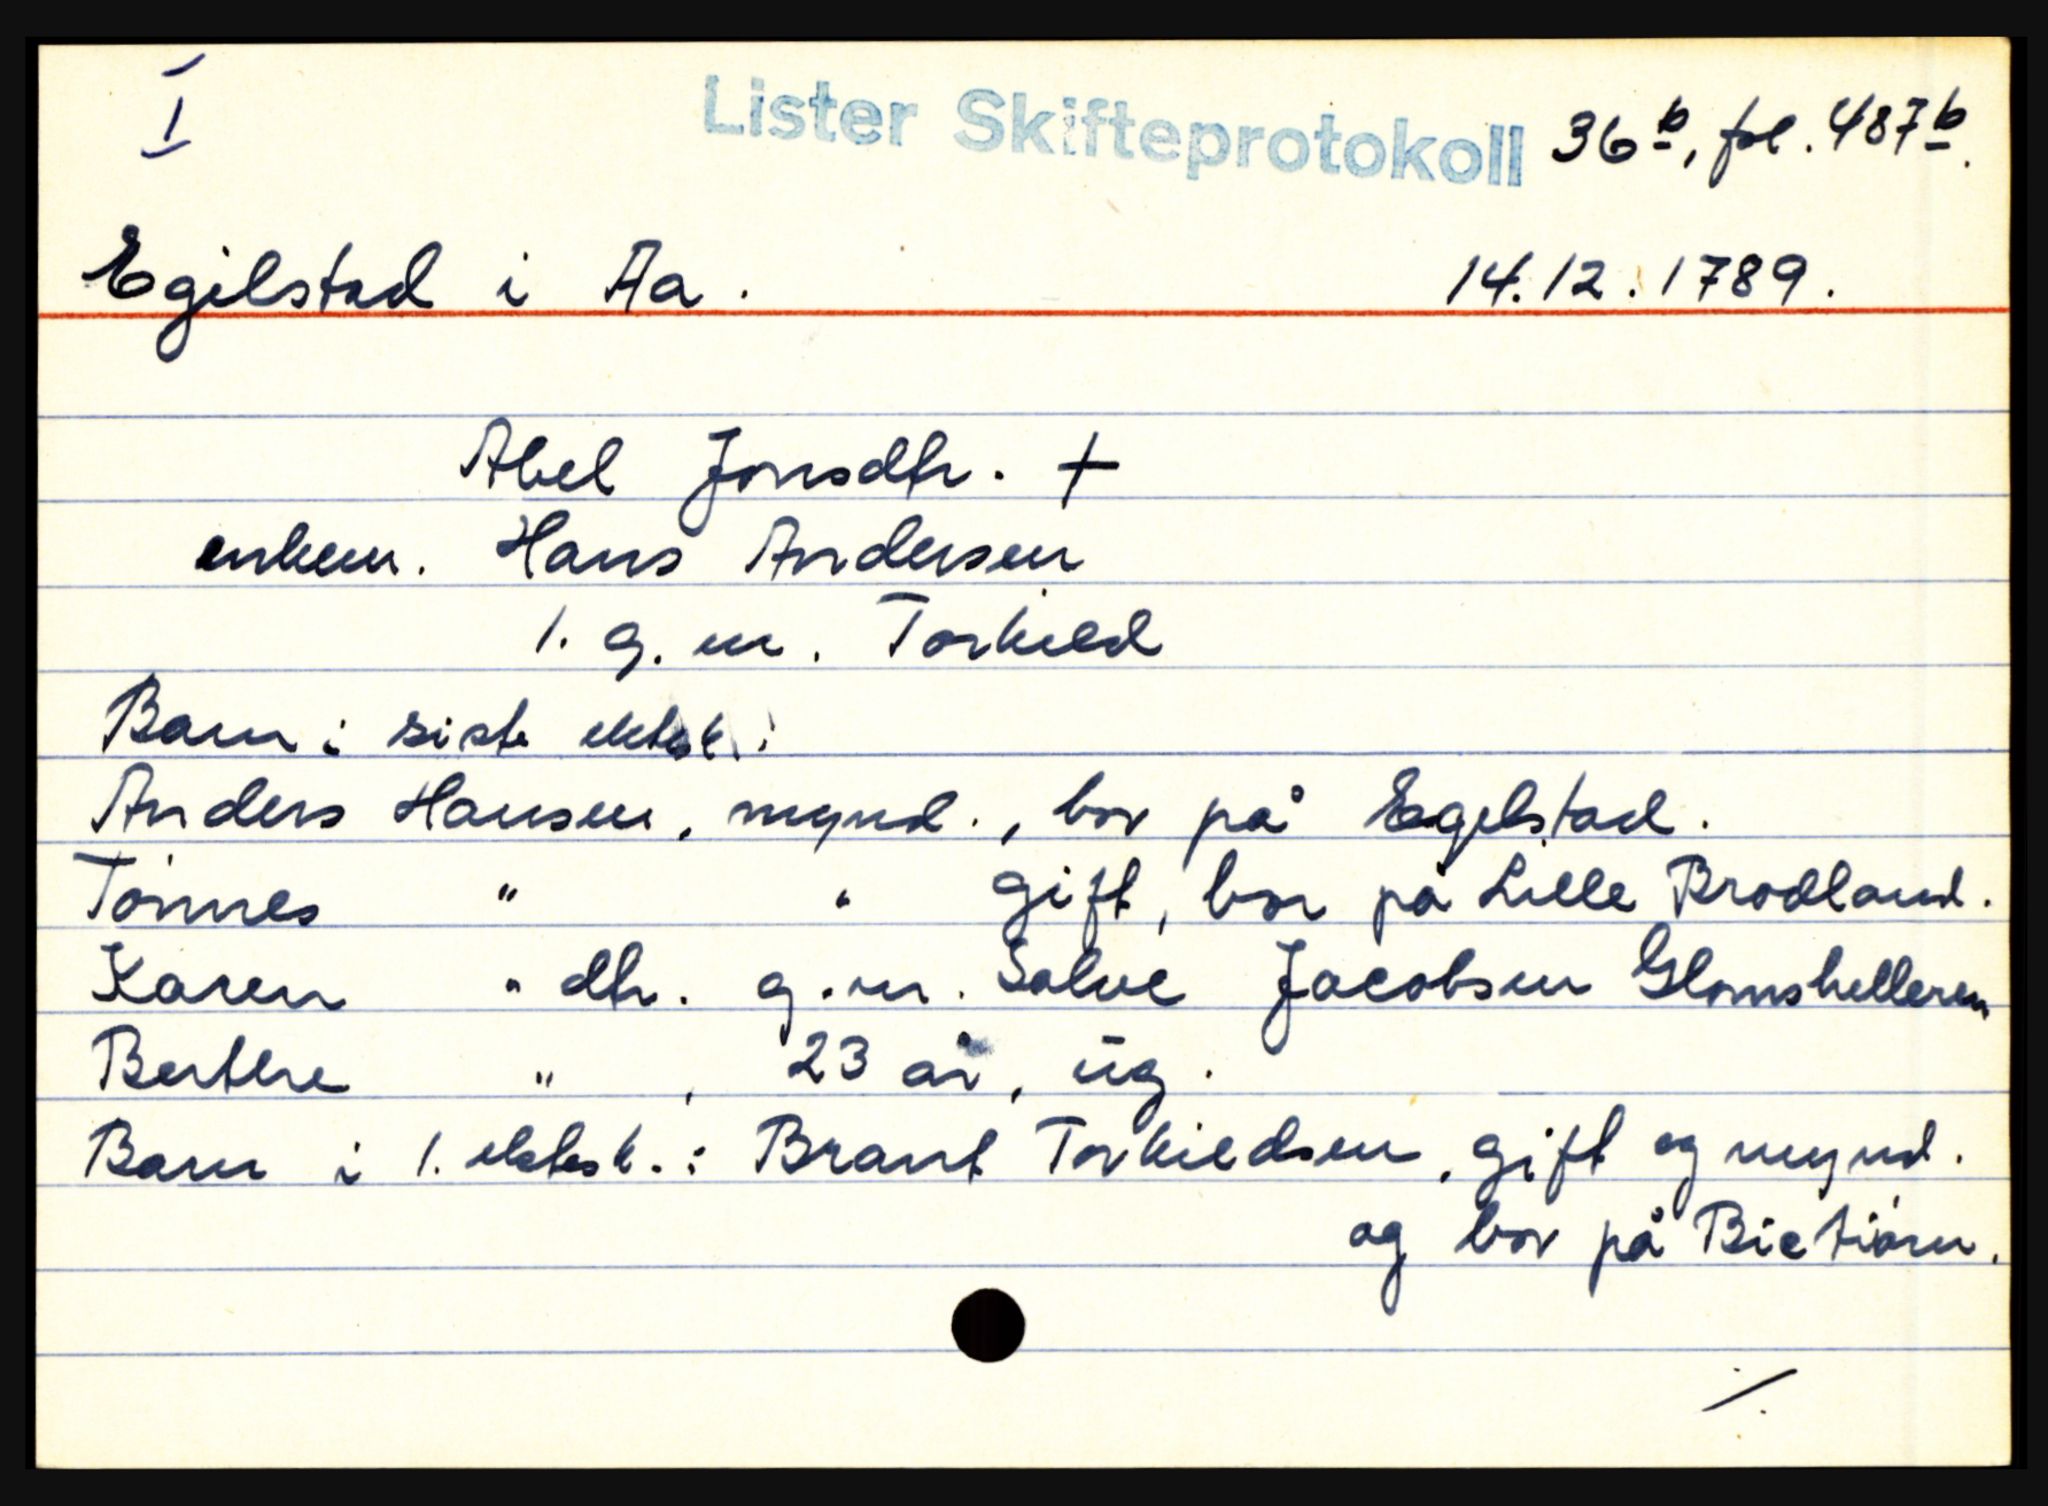 I
Lister Skifteprotokoll 36b, fol. 487b.
Egilstad i Aa. 14.12.1789.
Abel Jonsdtr. +
enkem. Hans Andersen
1. g. m. Torkild
Barn i siste ektesk.:
Anders Hansen, mynd., bor på Egelstad.
Tønnes " " gift, bor på Lille Brodland.
Karen " dtr. g.m. Salve Jacobsen Glomshelleren
Berthe " , 23 år, ug.
Barn i 1. ektesk.: Brant Torkildsen, gift og mynd.
og bor på Bietiørn.
./.